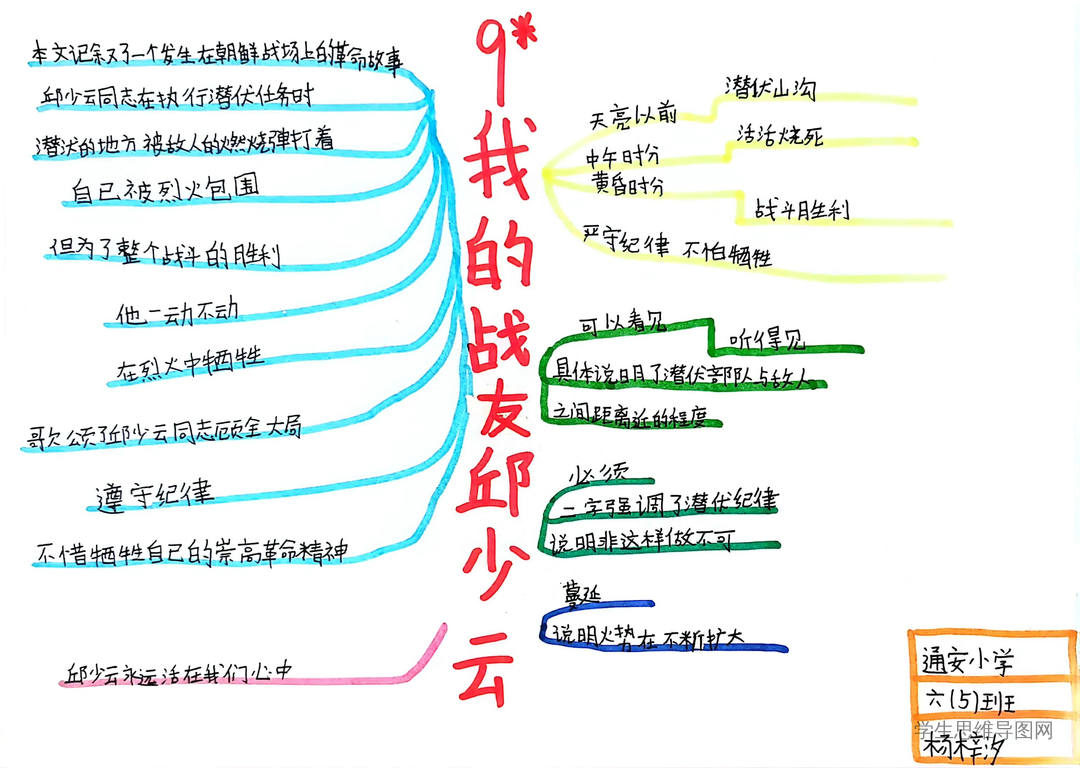 9*我的战友邱少云
本文记叙了一个发生在朝鲜战场上的革命故事
邱少云同志在执行潜伏任务时
潜伏的地方被敌人的燃烧弹打着
自己被烈火包围
但为了整个战斗的胜利
他一动不动
在烈火中牺牲
歌颂了邱少云同志顾全大局
遵守纪律
不惜牺牲自己的崇高革命精神
邱少云永远活在我们心中
天亮以前
潜伏山沟
中午时分
活活烧死
黄昏时分
战斗胜利
严守纪律 不怕牺牲
可以看见
听得见
具体说明了潜伏部队与敌人
之间距离近的程度
必须
一字强调了潜伏纪律
说明非这样做不可
蔓延
说明火势在不断扩大
通安小学
六(5)班
杨梓汐
学生思维导图网